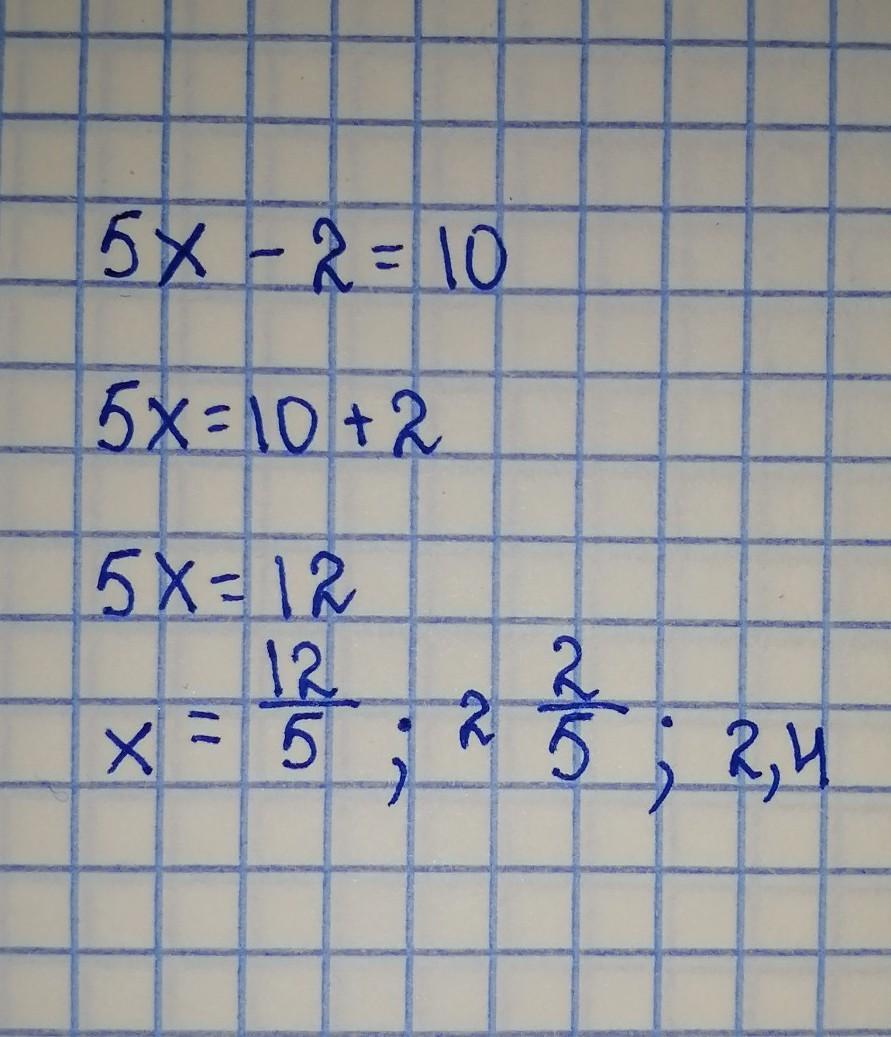 5x - 2 = 10
5x = 10 + 2
5x = 12
x = 12/5 ; 2 2/5 ; 2,4